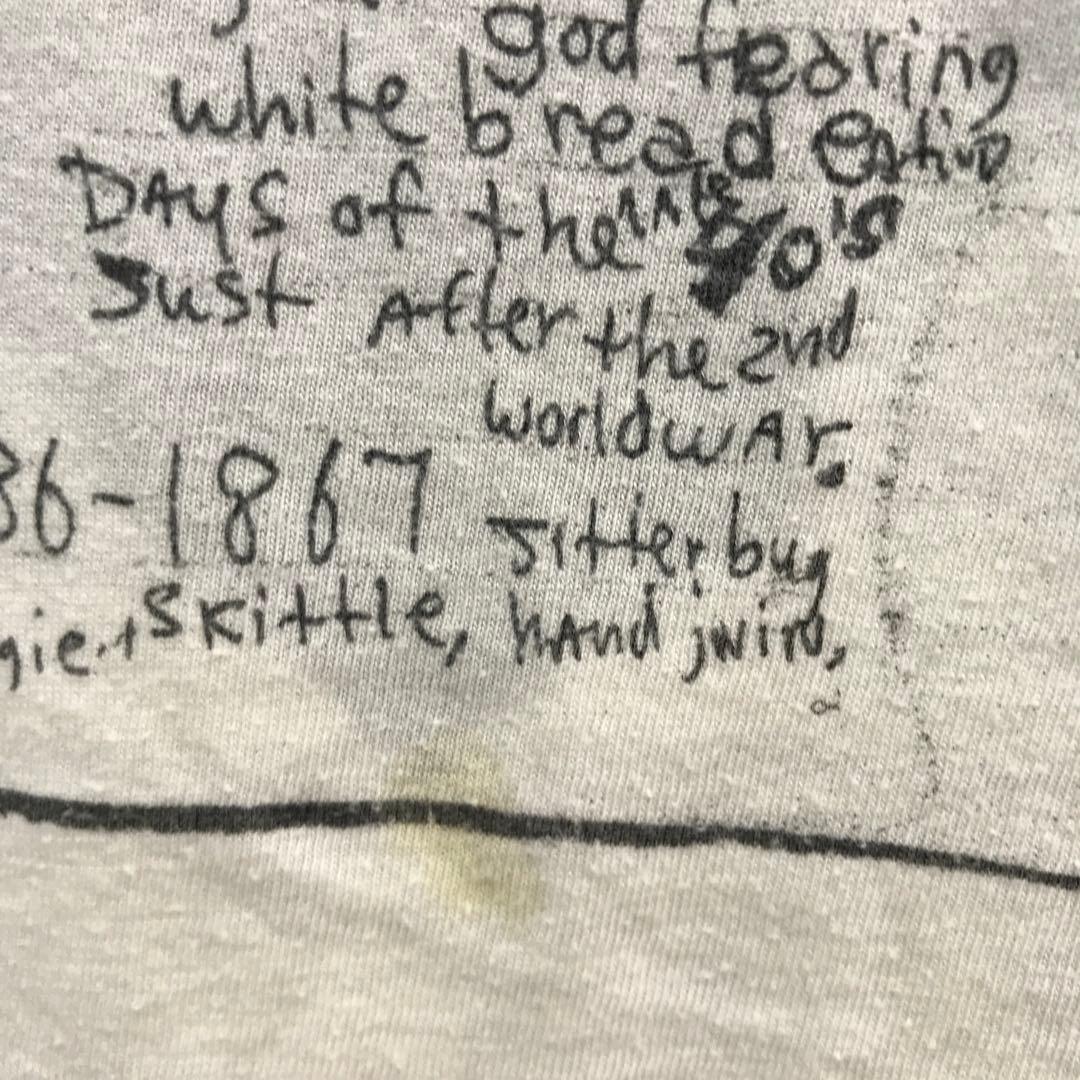 god fearing
white bread eating
DAYS of the late 40's
Just After the 2nd
worldwAr.
86-1867 Jitterbug
gie. + SKittle, hAnd jwird,